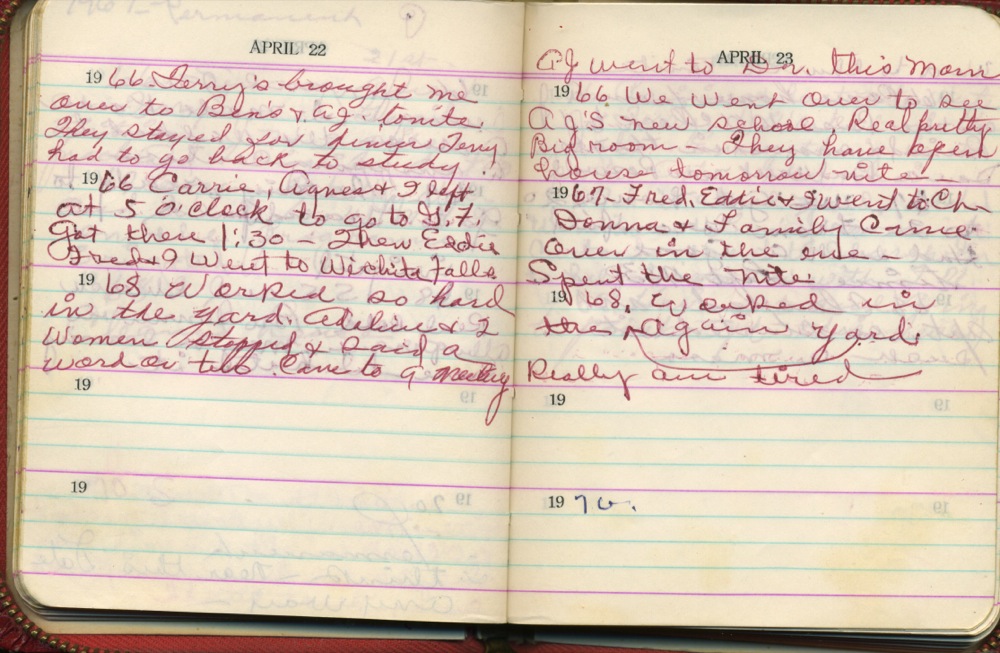 APRIL 22
1966 Terry's brought me
over to Ben's & AJ. tonite.
They stayed for Terry
had to go back to study.
1966 Carrie, Agnes & I left
at 5 o'clock to go to
Got there 1:30 - Then Eddie
Fred & I went to Wichita Falls
1968 Worked so hard
in the yard. & 2
women stopped & said a
word or two. Came to a meeting
19
19
APRIL 23
AJ went to Dr. this Morn
1966 We went over to see
AJ'S new school. Real pretty
Big room - They have open
house tomorrow nite -
1967- Fred, Eddie & I went to Ch-
Donna & Family Came
over in the eve -
Spent the nite.
1968. Worked in
the Again yard.
Really am tired
19
1970.